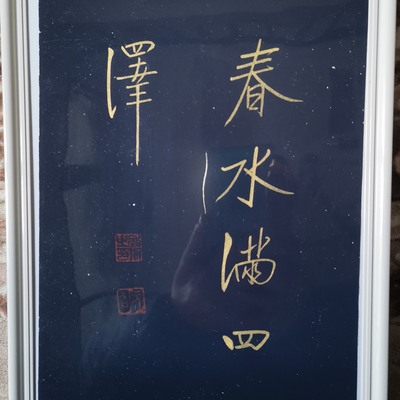 春水满四
澤